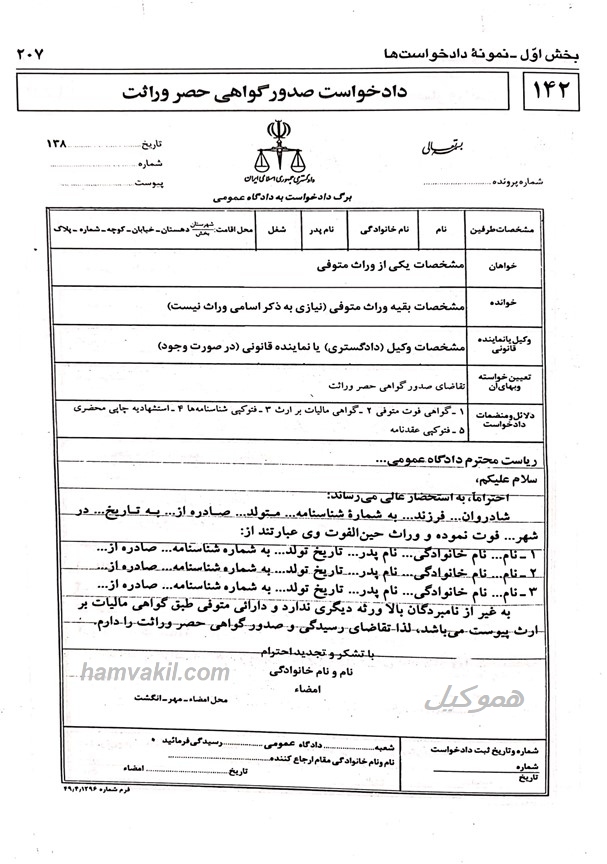 بخش اوّل ـ نمونهٔ دادخواست‌ها
۲۰۷
۱۴۲
دادخواست صدور گواهی حصر وراثت
بسمه تعالی
دادگستری جمهوری اسلامی ایران
تاریخ .................... ۱۳۸
شماره ....................
پیوست ....................
شماره پرونده ....................
برگ دادخواست به دادگاه عمومی
مشخصات طرفین نام نام خانوادگی نام پدر شغل محل اقامت: شهرستان بخش دهستان ـ خیابان ـ کوچه ـ شماره ـ پلاک
خواهان مشخصات یکی از وراث متوفی
خوانده مشخصات بقیه وراث متوفی (نیازی به ذکر اسامی وراث نیست)
وکیل یا نماینده قانونی مشخصات وکیل (دادگستری) یا نماینده قانونی (در صورت وجود)
تعیین خواسته وبهای آن تقاضای صدور گواهی حصر وراثت
دلائل و منضمات دادخواست ۱ ـ گواهی فوت متوفی ۲ ـ گواهی مالیات بر ارث ۳ ـ فتوکپی شناسنامه‌ها ۴ ـ استشهادیه چاپی محضری
۵ ـ فتوکپی عقدنامه
ریاست محترم دادگاه عمومی...
سلام علیکم،
احتراماً، به استحضار عالی می‌رساند:
شادروان... فرزند... به شمارهٔ شناسنامه... متولد... صادره از... به تاریخ... در
شهر... فوت نموده و وراث حین‌الفوت وی عبارتند از:
۱ ـ نام... نام خانوادگی... نام پدر... تاریخ تولد... به شماره شناسنامه... صادره از...
۲ ـ نام... نام خانوادگی... نام پدر... تاریخ تولد... به شماره شناسنامه... صادره از...
۳ ـ نام... نام خانوادگی... نام پدر... تاریخ تولد... به شماره شناسنامه... صادره از...
به غیر از نامبردگان بالا ورثه دیگری ندارد و دارائی متوفی طبق گواهی مالیات بر
ارث پیوست می‌باشد، لذا تقاضای رسیدگی و صدور گواهی حصر وراثت را دارم.
با تشکر و تجدید احترام
نام و نام خانوادگی
امضاء
محل امضاء ـ مهر ـ انگشت
hamvakil.com
هموکیل
شماره و تاریخ ثبت دادخواست
شماره
تاریخ
شعبه .................... دادگاه عمومی .................... رسیدگی فرمائید
نام ونام خانوادگی مقام ارجاع کننده ....................
تاریخ .................... امضاء
فرم شماره ۴۹٫۴٫۱۲۹۶